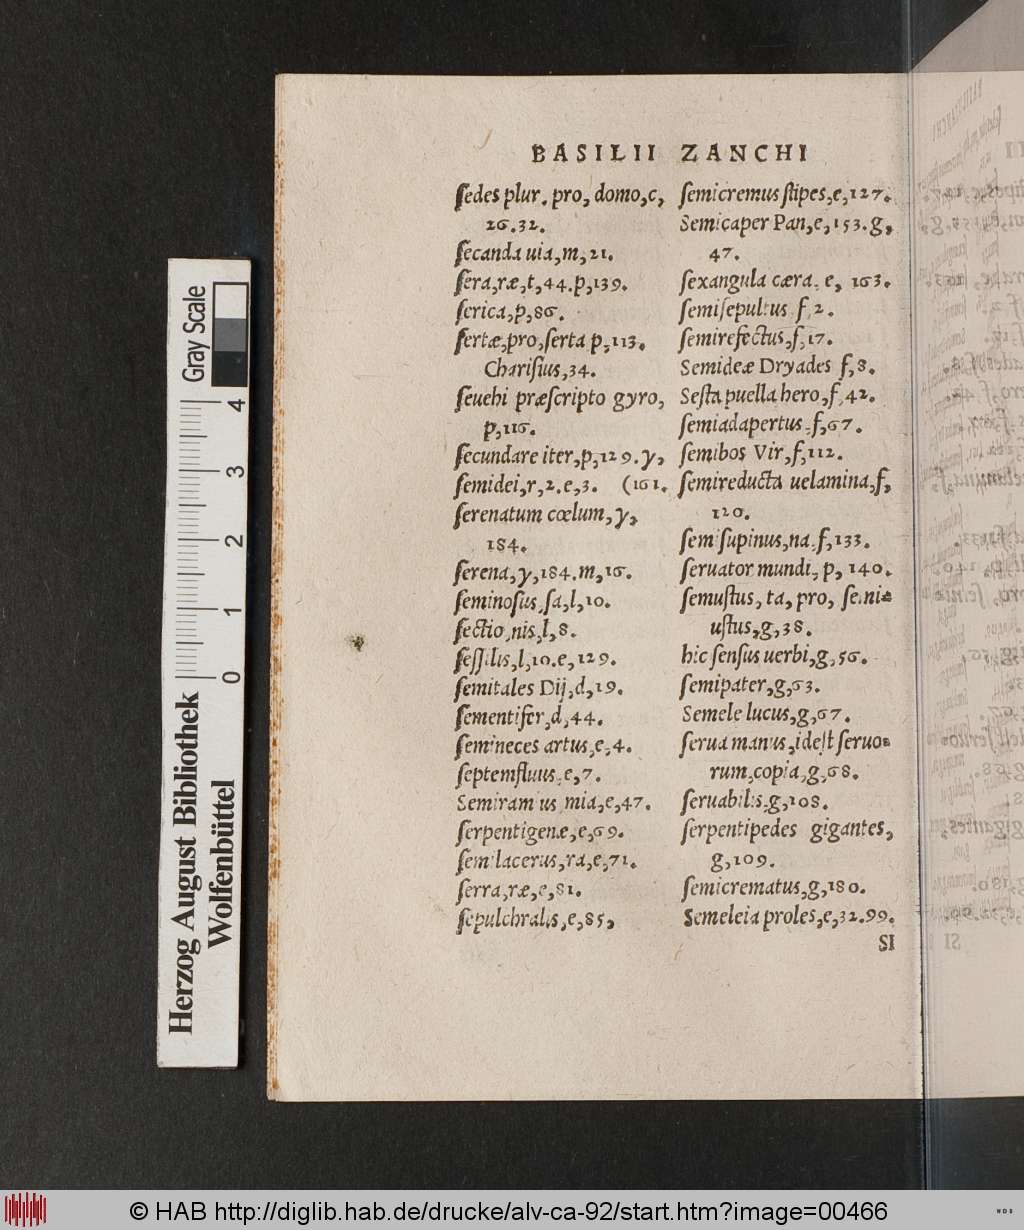 BASILII ZANCHI
ſedes plur. pro, domo, c,
26.32.
ſecanda uia, m, 21.
ſera, ræ, t, 44. p, 139.
ſerica, p, 86.
ſertæ, pro, ſerta p, 113.
Chariſius, 34.
ſeuehi præſcripto gyro,
p, 116.
ſecundare iter, p, 129. y,
ſemidei, r, 2. e, 3. (161.
ſerenatum cœlum, y,
184.
ſerena, y, 184. m, 16.
ſeminoſus, ſa, l, 10.
ſectio, nis, l, 8.
ſeſſilis, l, 10. e, 129.
ſemitales Dij, d, 19.
ſementifer, d, 44.
ſemineces artus, e, 4.
ſeptemfluus, e, 7.
Semiramius mia, e, 47.
ſerpentigenæ, e, 69.
ſemilacerus, ra, e, 71.
ſerra, ræ, e, 81.
ſepulchralis, e, 85,
ſemicremus ſtipes, e, 127.
Semicaper Pan, e, 153. g,
47.
ſexangula cæra, e, 163.
ſemiſepultus f, 2.
ſemirefectus, f, 17.
Semideæ Dryades f, 8.
Seſta puella hero, f, 42.
ſemiadapertus, f, 67.
ſemibos Vir, f, 112.
ſemireducta uelamina, f,
120.
ſemiſupinus, na, f, 133.
ſeruator mundi, p, 140.
ſemuſtus, ta, pro, ſemi-
uſtus, g, 38.
hic ſenſus uerbi, g, 56.
ſemipater, g, 63.
Semele lucus, g, 67.
ſerua manus, ideſt ſeruo-
rum, copia, g, 68.
ſeruabilis, g, 108.
ſerpentipedes gigantes,
g, 109.
ſemicrematus, g, 180.
Semeleia proles, e, 32. 99.
SI
Gray Scale
4
3
2
1
0
Herzog August Bibliothek
Wolfenbüttel
© HAB http://diglib.hab.de/drucke/alv-ca-92/start.htm?image=00466